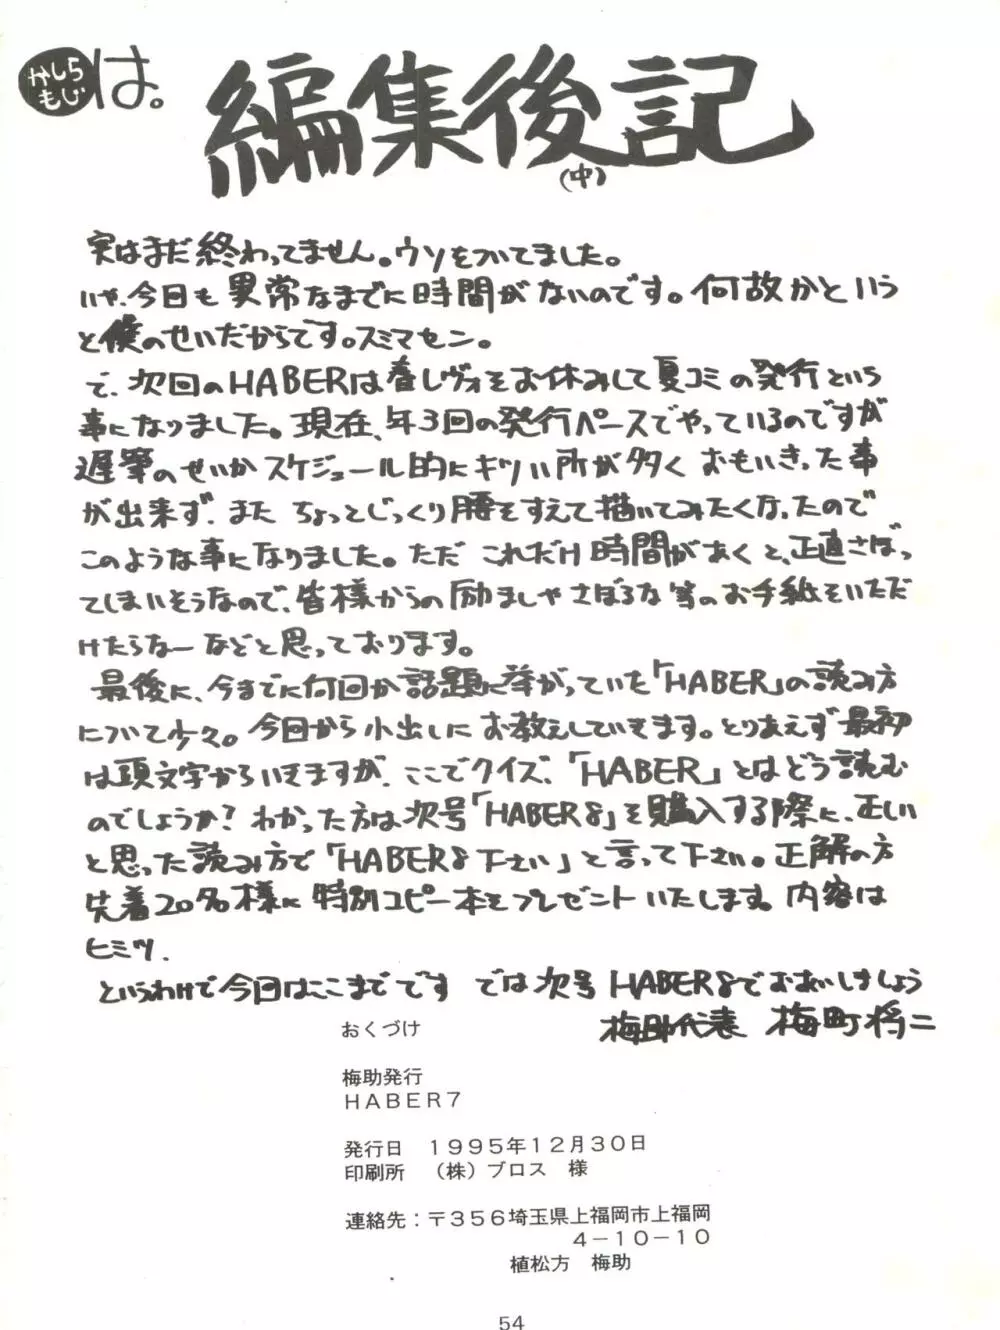 かしらもじ は。
編集後記
(中)
実はまだ終わってません。ウソをついてました。
いや、今日も異常なまでに時間がないのです。何故かという
と僕のせいだからです。スミマセン。
で、次回のHABERは春レヴォをお休みして夏コミの発行という
事になりました。現在、年3回の発行ペースでやっているのですが
遅筆のせいかスケジュール的にキツい所が多く おもいきった事
が出来ず、また ちょっとじっくり腰をすえて描いてみたくなったので
このような事になりました。ただ これだけ時間があくと、正直さぼっ
てしまいそうなので、皆様からの励ましやさぼるな等のお手紙をいただ
けたらなーなどと思っております。
最後に、今までに何回か話題に挙がっていた「HABER」の読み方
について少々。今回から小出しにお教えしていきます。とりあえず最初
は頭文字からいきますが、ここでクイズ、「HABER」とはどう読む
のでしょうか?わかった方は次号「HABER8」を購入する際に、正しい
と思った読み方で「HABER8下さい」と言って下さい。正解の方
先着20名様に特別コピー本をプレゼントいたします。内容は
ヒミツ.
というわけで今回はここまでです では次号HABER8でおあいしましょう
梅助代表 梅町将二
おくづけ
梅助発行
HABER7
発行日 1995年12月30日
印刷所 (株)ブロス 様
連絡先:〒356埼玉県上福岡市上福岡
4-10-10
植松方 梅助
54